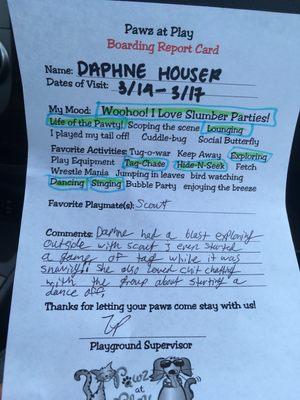 Pawz at Play
Boarding Report Card
Name: DAPHNE HOUSER
Dates of Visit: 3/14-3/17
My Mood: Woohoo! I Love Slumber Parties!
Life of the Pawty! Scoping the scene Lounging
I played my tail off! Cuddle-bug Social Butterfly
Favorite Activities: Tug-o-war Keep Away Exploring
Play Equipment Tag-Chase Hide-N-Seek Fetch
Wrestle Mania Jumping in leaves bird watching
Dancing Singing Bubble Party enjoying the breeze
Favorite Playmate(s): Scout
Comments: Daphne had a blast exploring
outside with scout & even started
a game of tag while it was
snowing!! She also loved chit chatting
with the group about starting a
dance off.
Thanks for letting your pawz come stay with us!
Playground Supervisor
Pawz
at
Play